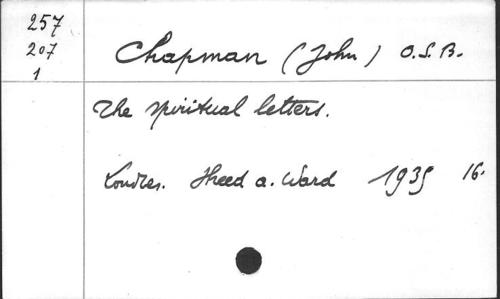 257
207
1
Chapman (John) O.S.B.
The spiritual letters.
Londres. Sheed a. Ward 1935 16.